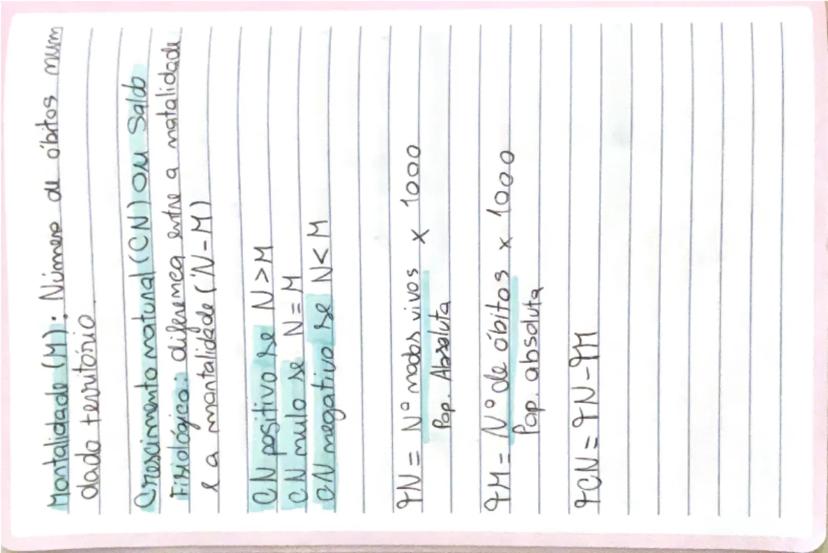 Mortalidade (M): Número de óbitos num
dado território.
Crescimento natural (CN) ou Saldo
Fisiológico: diferença entre a natalidade
e a mortalidade (N-M)
CN positivo se N>M
CN nulo se N=M
CN negativo se N<M
TN = Nº nados vivos x 1000
Pop. Absoluta
TM = Nº de óbitos x 1000
Pop. absoluta
TCN = TN-TM